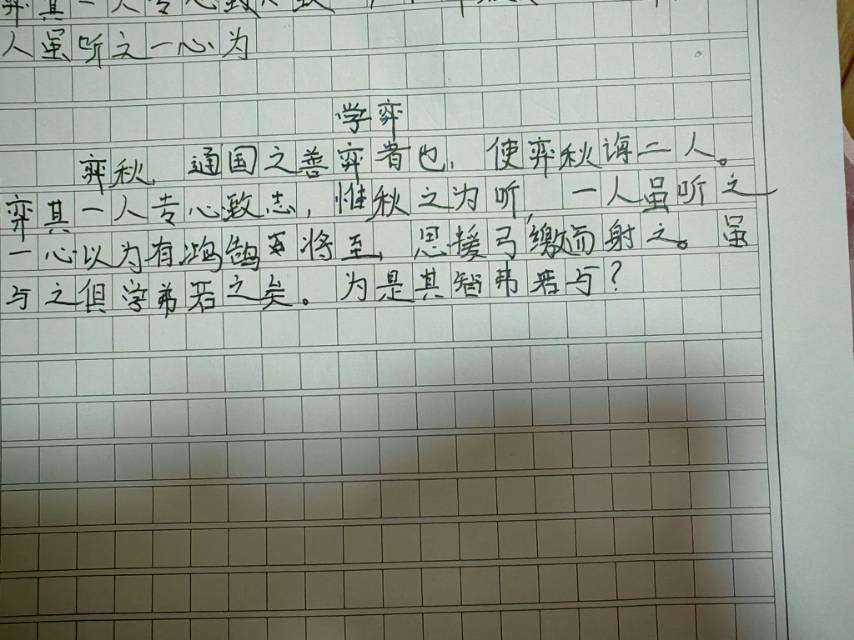 弈其一人专心致
人虽听之一心为
学弈
弈秋，通国之善弈者也，使弈秋诲二人。
弈其一人专心致志，惟秋之为听，一人虽听之
一心以为有鸿鹄将至，思援弓缴而射之。虽
与之俱学弗若之矣。为是其智弗若与？